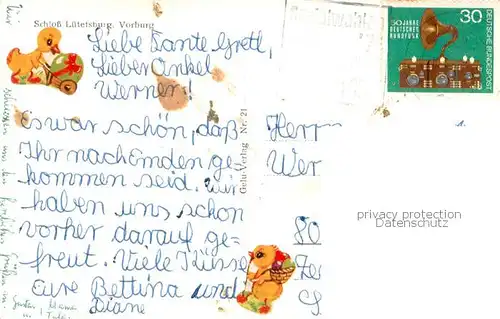 Schloß Lütetsburg, Vorburg
Liebe Tante Gretl,
Lieber Onkel
Werner!
Es war schön, daß
Ihr nach Emden ge-
kommen seid. Wir
haben uns schon
vorher darauf ge-
freut. Viele Küsse
Eure Bettina und
Diane
Gebr-Verlag Nr. 21
30
50 JAHRE
DEUTSCHER
RUNDFUNK
DEUTSCHE BUNDESPOST
Herr
Wer
80
privacy protection
Datenschutz